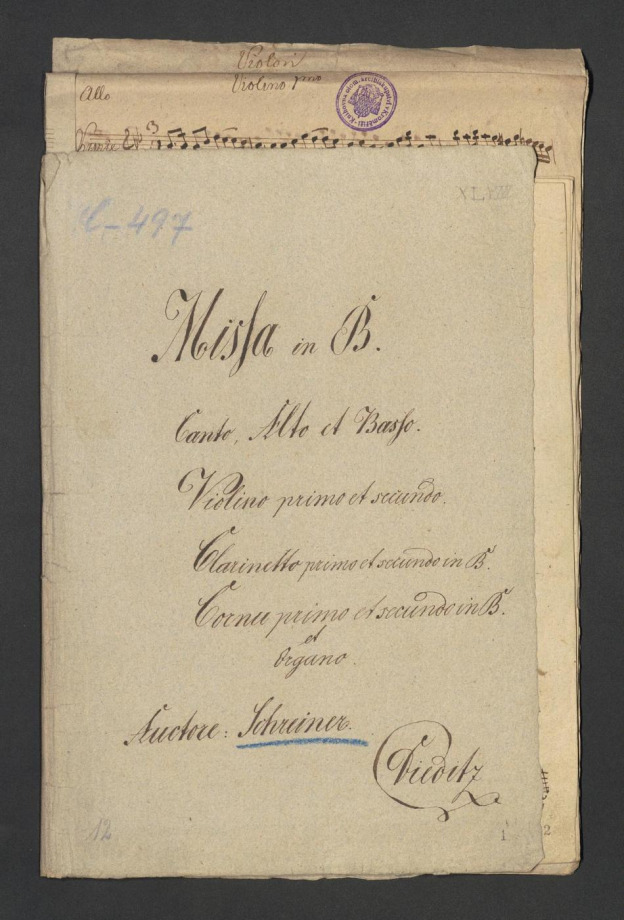 Violon
Violino pmo
Allo
C-497
XLVIII
Missa in B.
Canto, Alto et Basso.
Violino primo et secundo.
Clarinetto primo et secundo in B.
Cornu primo et secundo in B.
et
Organo.
Auctore: Schreiner.
12
1
2